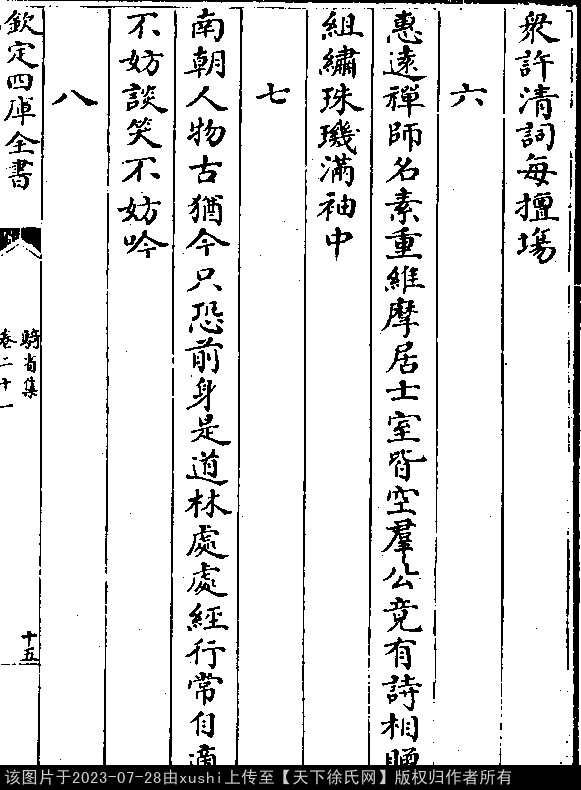 衆許清詞每擅塲
六
惠逺禪師名素重維摩居士室皆空羣公竟有詩相贈
組繡珠璣滿袖中
七
南朝人物古猶今只恐前身是道林處處經行常自適
不妨談笑不妨吟
八
欽定四庫全書
騎省集
卷二十一
十五
该图片于2023-07-28由xushi上传至【天下徐氏网】版权归作者所有